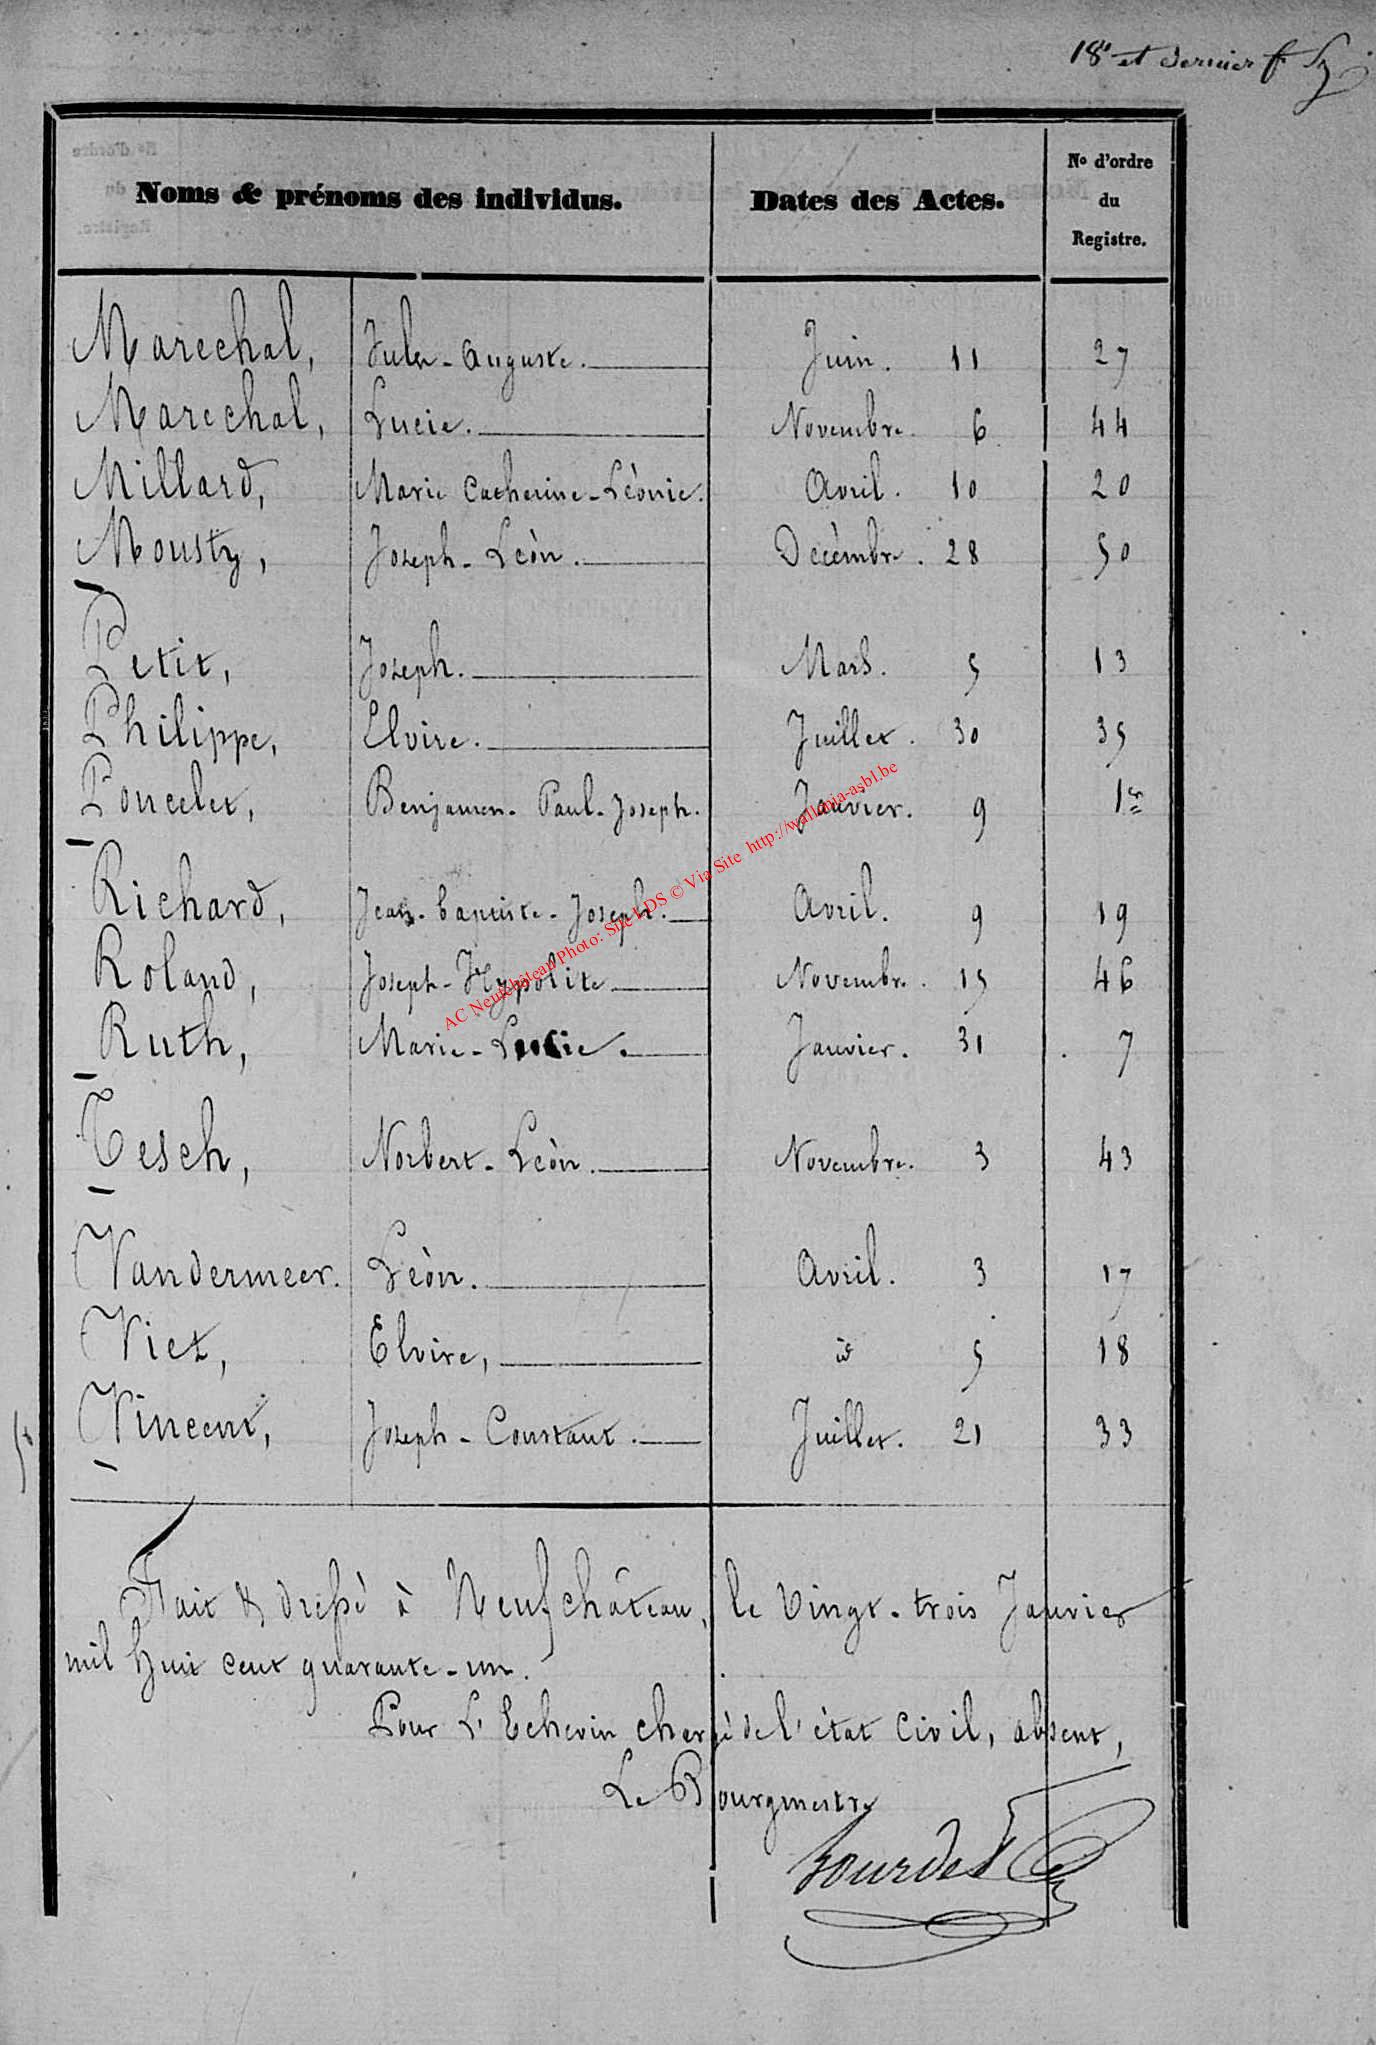 18e et dernier f.
Noms & prénoms des individus. Dates des Actes. No d'ordre du Registre.
Marechal, Jules-Auguste. Juin. 11 27
Marechal, Lucie. Novembre. 6 44
Millard, Marie Catherine-Lèonie. Avril. 10 20
Mousty, Joseph-Leòn. Decèmbre. 28 50
Petit, Joseph. Mars. 5 13
Philippe, Elvire. Juillet. 30 35
Poncelet, Benjamen-Paul-Joseph. Janvier. 9 1er
Richard, Jean-baptiste-Joseph. Avril. 9 19
Roland, Joseph-Hypolite Novembre. 15 46
Ruth, Marie-Lucie. Janvier. 31 7
Tesch, Norbert-Leòn. Novembre. 3 43
Vandermeer. Lèòn. Avril. 3 17
Viez, Elvire, id 5 18
Vincent, Joseph-Constant. Juillet. 21 33
Fait & dressé à Neufchâteau, le Vingt-trois Janvier
mil huit cent quarante-un.
Pour L'Echevin chargé de l'état Civil, absent,
Le Bourgmestre
Bourdet
AC Neufchâteau Photo: Site LDS © Via Site http://wallonia-asbl.be